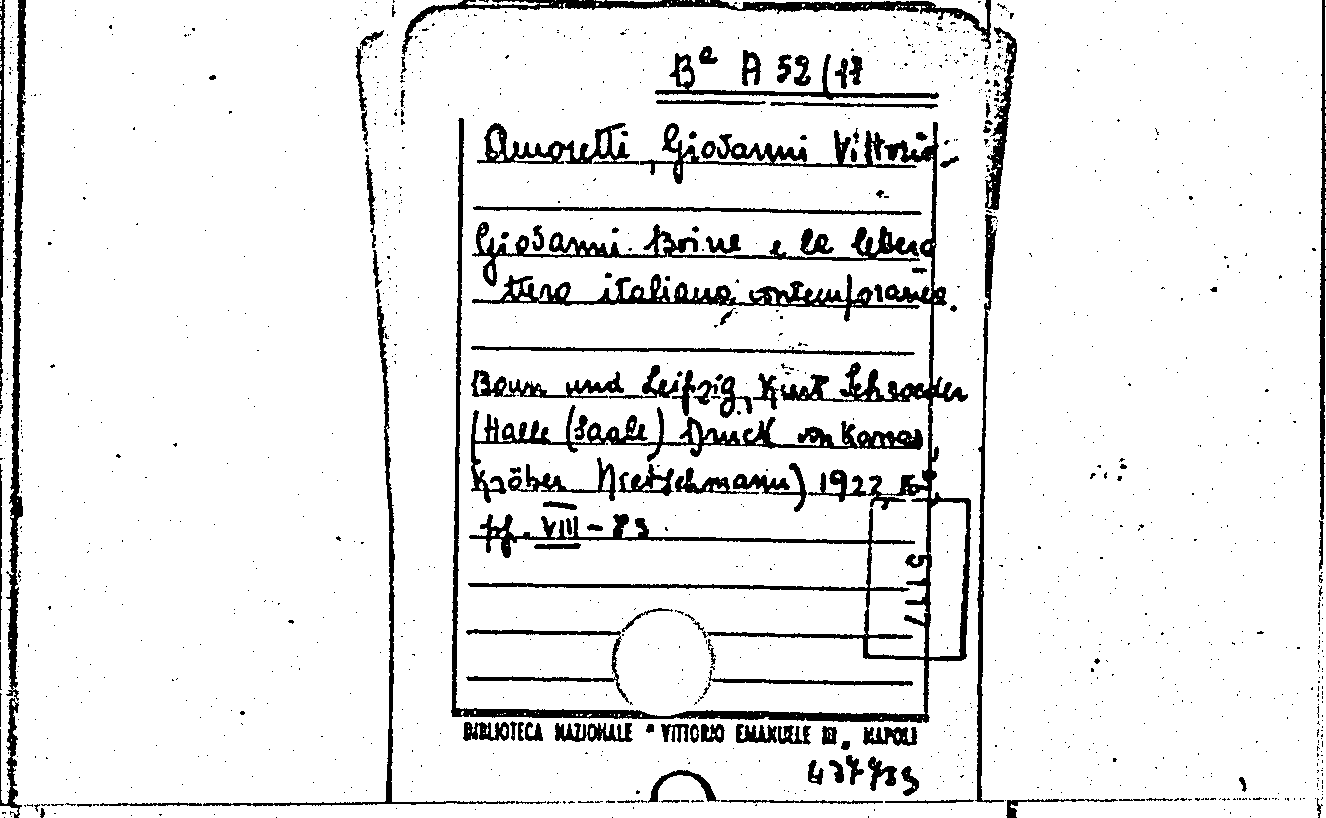 Bᵉ A 52 (17
Amoretti, Giovanni Vittorio
Giovanni Boine e la lettera
tura italiana contemporanea.
Bonn und Leipzig, Kurt Schroeder
(Halle (Saale) Druck von Karras,
Kröber Nietschmann) 1922, 8°,
pp. VIII - 83
5117
BIBLIOTECA NAZIONALE "VITTORIO EMANUELE III, NAPOLI